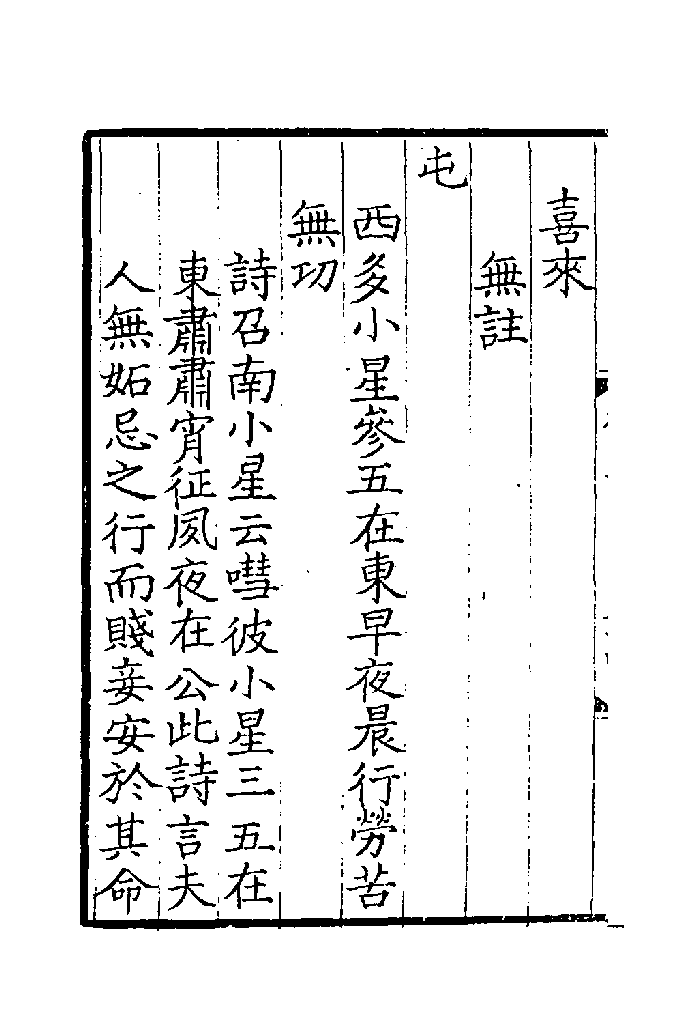 喜來
無註
屯
西多小星參五在東早夜晨行勞苦
無功
詩召南小星云嘒彼小星三五在
東肅肅宵征夙夜在公此詩言夫
人無妬忌之行而賤妾安於其命